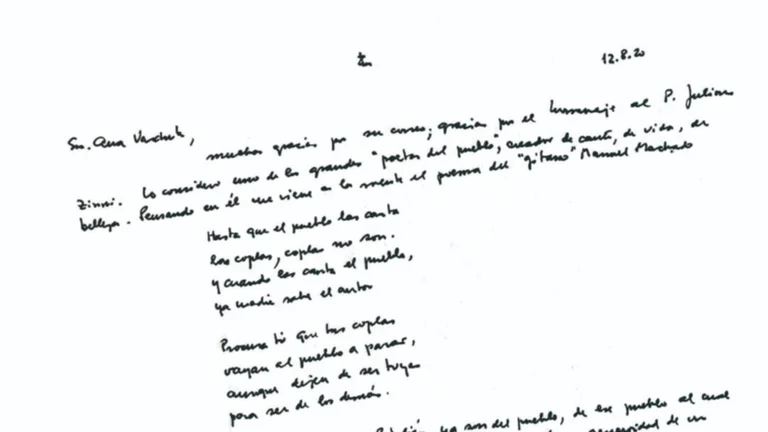 12.8.20
Sra. Ana
muchas gracias por su correo; gracias por el homenaje al P. Julián
Zini. Lo considero uno de los grandes "poetas del pueblo", creador de canto, de vida, de
belleza. Pensando en él me viene a la mente el poema del "gitano" Manuel Machado
Hasta que el pueblo las canta
las coplas, coplas no son.
y cuando las canta el pueblo,
ya nadie sabe el autor
Procura tú que tus coplas
vayan al pueblo a parar,
aunque dejen de ser tuyas
para ser de los demás.
ya son del pueblo, de ese pueblo al cual
de un